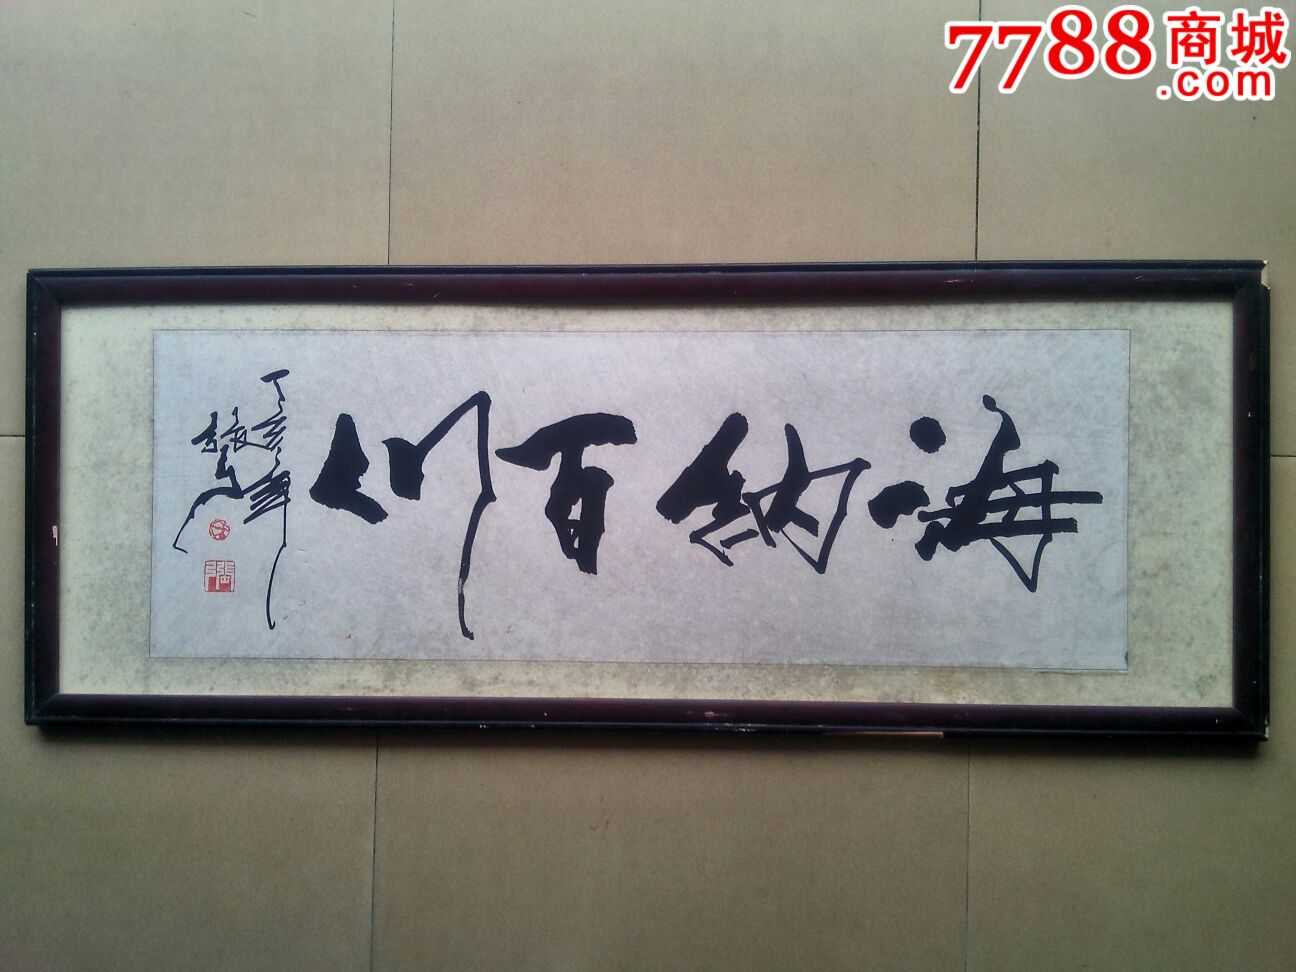 7788商城
.com
海纳百川
丁亥年